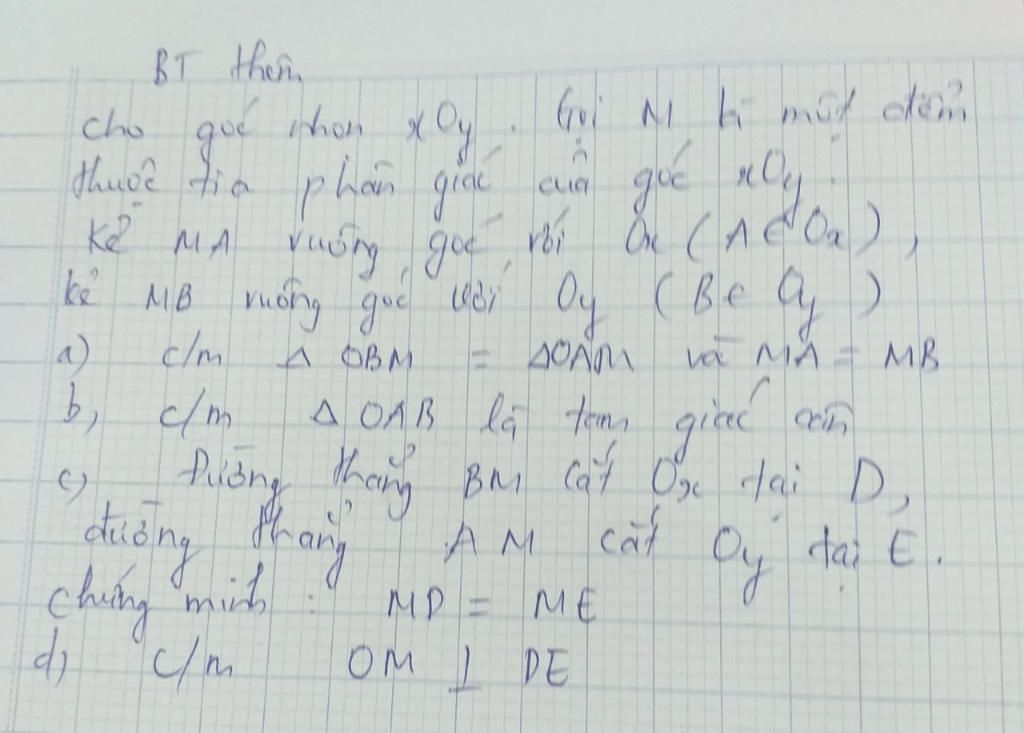 BT thêm
Cho góc nhọn xOy. Gọi M là một điểm
thuộc tia phân giác của góc xOy.
Kẻ MA vuông góc với Ox (A ∈ Ox),
kẻ MB vuông góc với Oy (B ∈ Oy)
a) c/m Δ OBM = ΔOAM và MA = MB
b, c/m Δ OAB là tam giác cân
c) Đường thẳng BM cắt Ox tại D,
đường thẳng AM cắt Oy tại E.
Chứng minh: MD = ME
d) c/m OM ⊥ DE